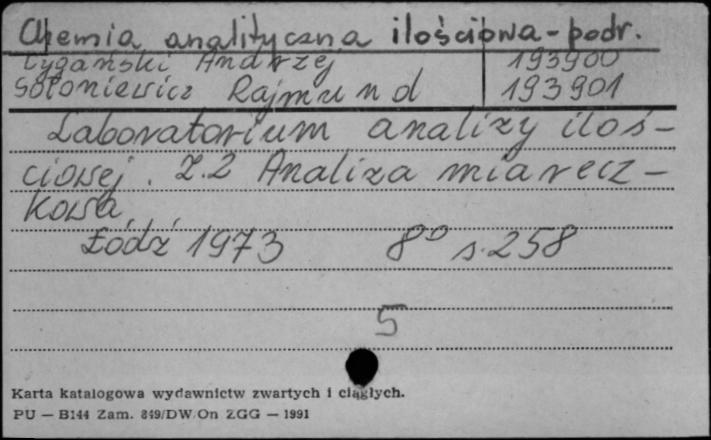 Chemia analityczna ilościowa - podr.
Cygański Andrzej 193900
Sołoniewicz Rajmund 193901
Laboratorium analizy iloś-
ciowej. Z.2 Analiza miarecz-
kowa
Łódź 1973 8° s. 258
5
Karta katalogowa wydawnictw zwartych i ciągłych.
PU — B144 Zam. 849/DW/On ZGG — 1991